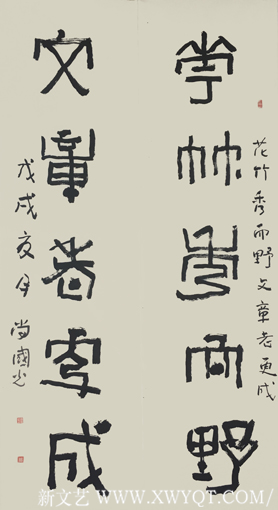 花竹秀而野文章老更成
花竹秀而野
文章老更成
戊戌夏月尚國光
新文艺 WWW.XWYQT.COM/